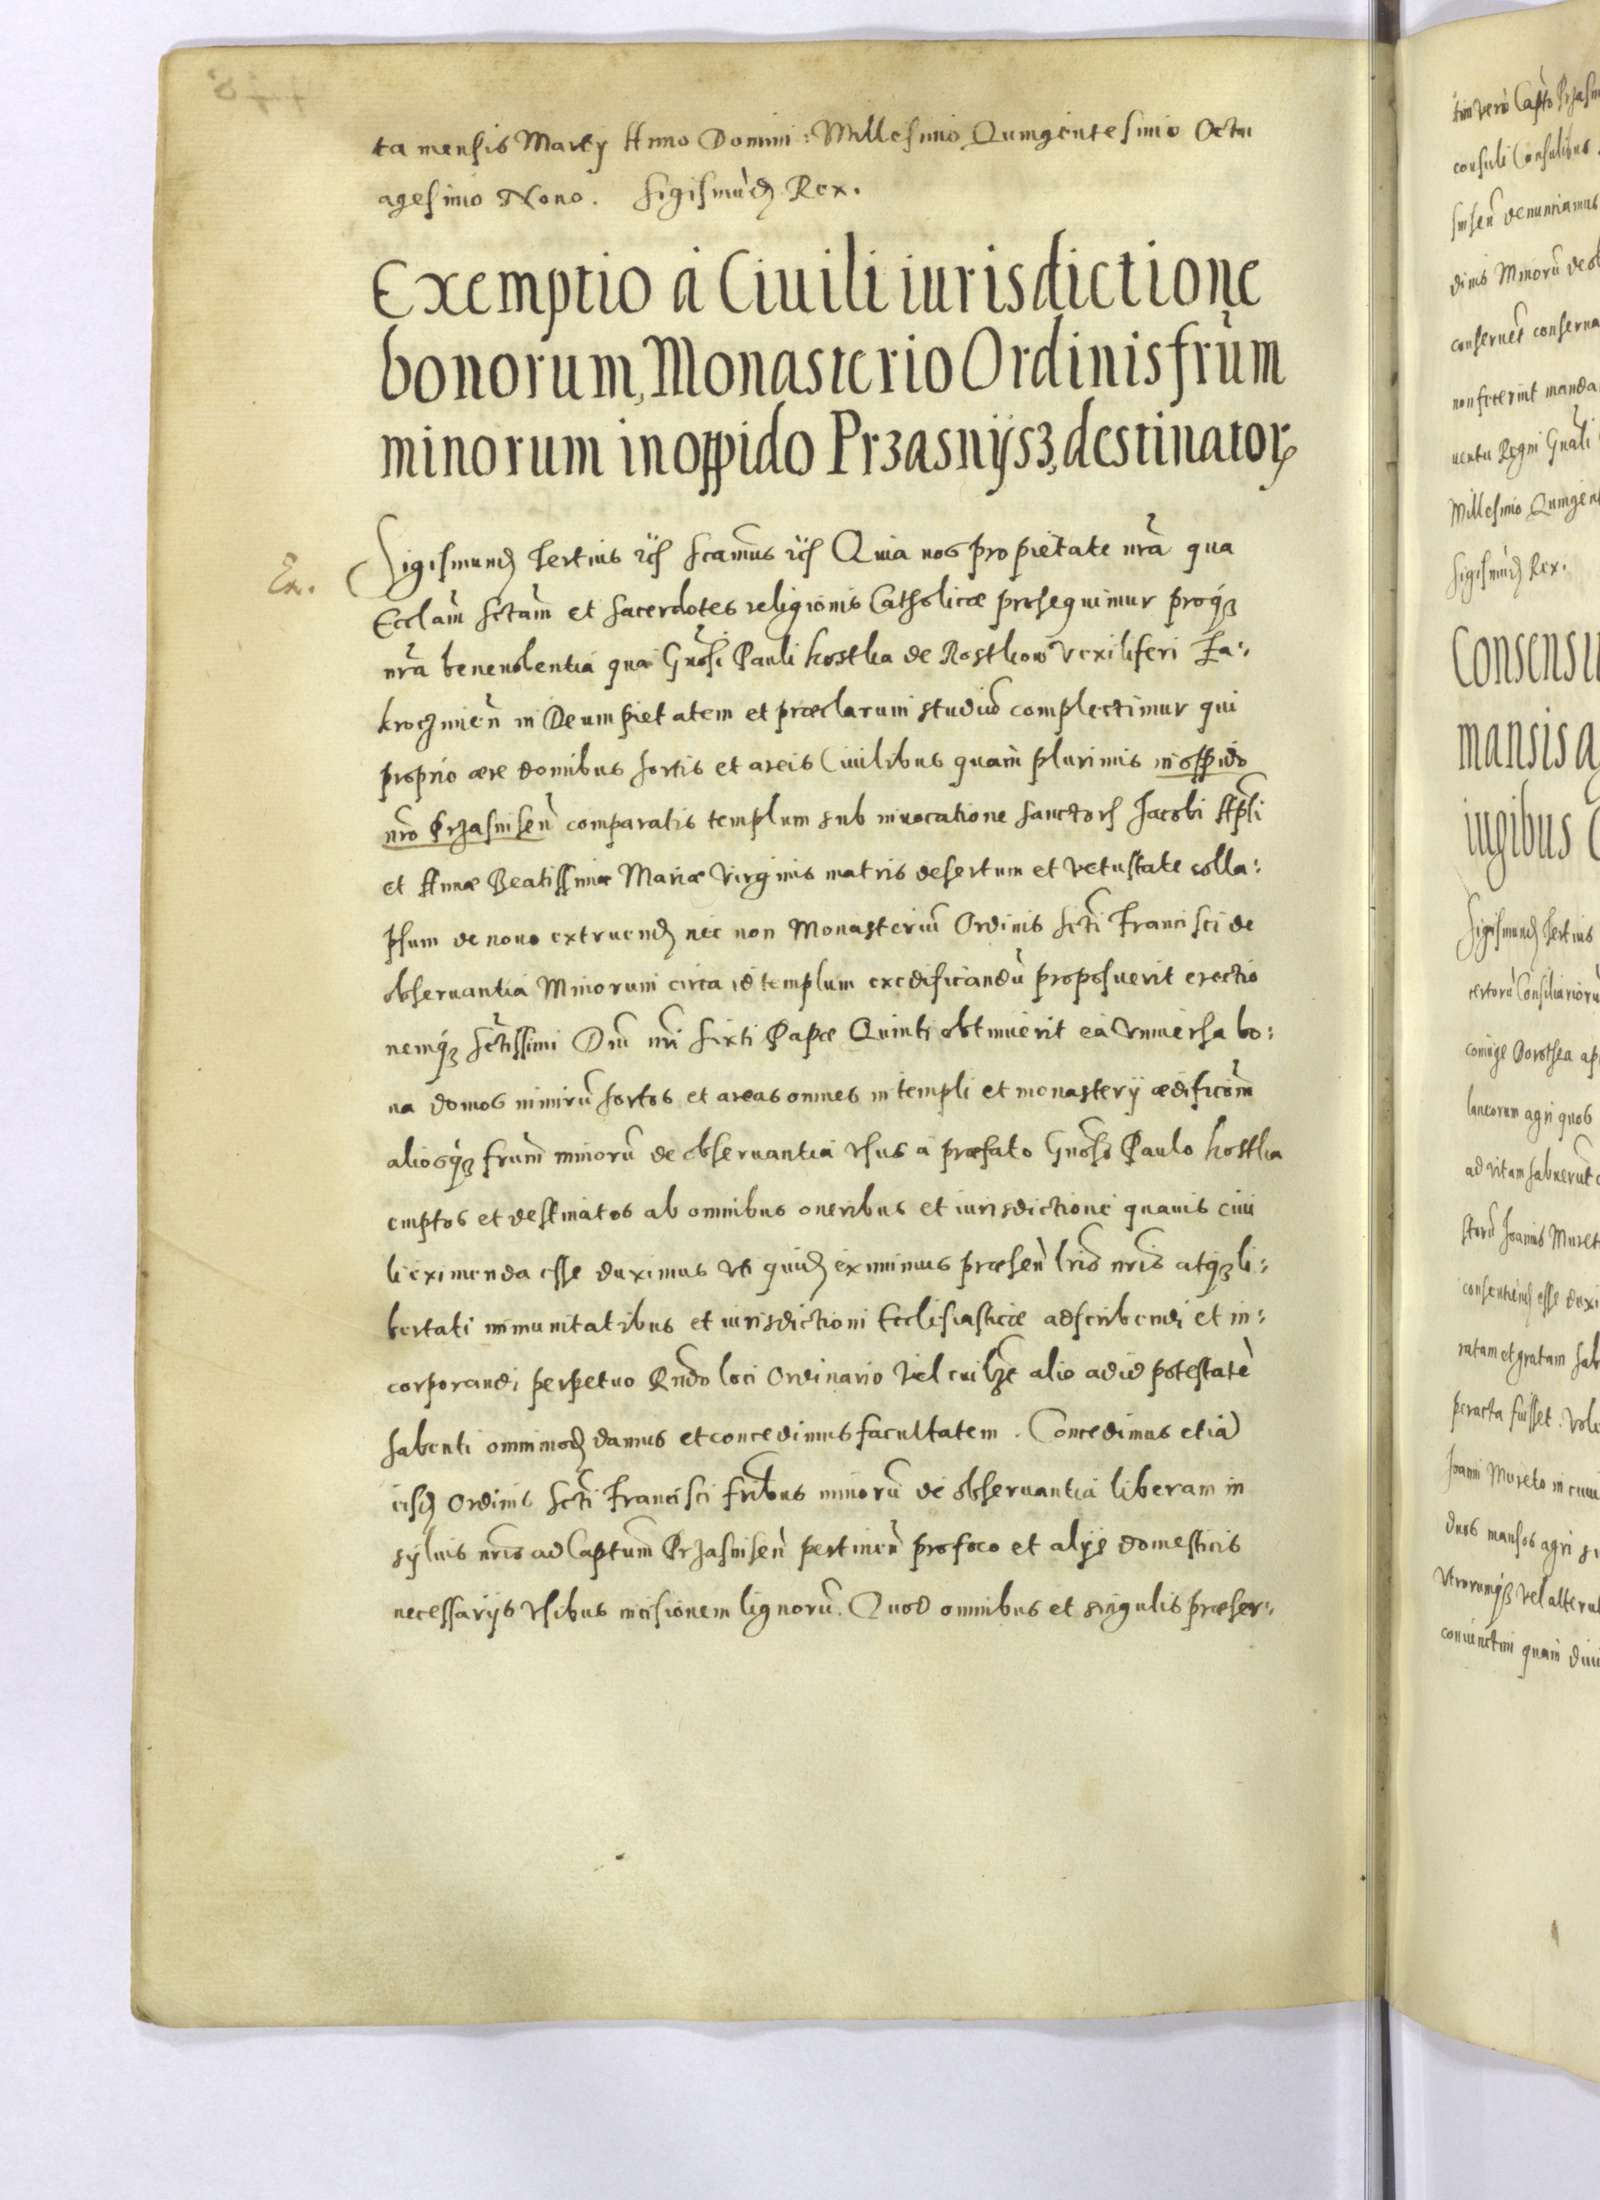 ta mensis Martij Anno Domini: Millesimo Quingentesimo Octu
agesimo Nono. Sigismūdq Rex.
Exemptio à Ciuili iurisdictione
bonorum, Monasterio Ordinis frūm
minorum in oppido Przasnijsz, destinatorꝝ
Ex.
Sigismundq Tertius Scamus Quia nos pro pietate nrā qua
Ecclām sctām et sacerdotes religionis Catholicæ prosequimur proqꝫ
nrā beneuolentia qua Gnōsi Pauli Kostka de Rostkow Vexiliferi Za:
krocżmien̄ in Deum pietatem et præclarum studiū complectimur qui
proprio ære domibus hortis et areis Ciuilibus quam plurimis in oppido
nro Przasnisen̄ comparatis templum sub inuocatione sanctorꝝ Jacobi Apli
et Annæ Beatissimæ Mariæ Virginis matris desertum et vetustate colla:
psum de nouo extruendq nec non Monasteriū Ordinis Scti Francisci de
obseruantia Minorum circa id templum exædificandū proposuerit erectio
nemqꝫ Sctissimi Dni nri Sixti Papæ Quinti obtinuerit ea Vniuersa bo:
na domos nimirū hortos et areas omnes in templi et monasterij ædificōm
aliosqꝫ frūm minorū de obseruantia vsus a præfato Gnōso Paulo Kostka
emptos et destinatos ab omnibus oneribus et iurisdictione quauis ciui
li eximenda esse duximus vti quidq eximimus præsen̄ lris nris atqꝫ li:
bertati immunitatibus et iurisdictioni Ecclesiasticæ adscribendi et in:
corporandi perpetuo Rndo loci Ordinario vel cuilꝫt alio ad id potestatē
habenti omnimodq damus et concedimus facultatem. Concedimus etiā
eisdq Ordinis Scti Francisci fribus minorū de obseruantia liberam in
syluis nris ad Captum Przasnisen̄ pertinen̄ pro foco et alijs domesticis
necessarijs vsibus incisionem lignorū. Quod omnibus et singulis præser:
tim vero Capto Przasn
consuli Consulibus
snisen̄ denuntiamus
dinis Minorū de ob
conseruet conserua
non fecerint manda
uentu Regni Gnāli
Millesimo Quingent
Sigismūdq Rex.
Consensu
mansis a
iugibus
Sigismundq Tertius
certorū Consiliariorū
coniuge Dorothea
laneorum agri quos
ad vitam habuerunt
Joannis Muret
consentiendq esse duxi
ratam et gratam hab
peracta fuisset. Vole
Joanni Mureto
duos mansos agri
Vtrorumqꝫ vel alteru
coniunctim quam diui